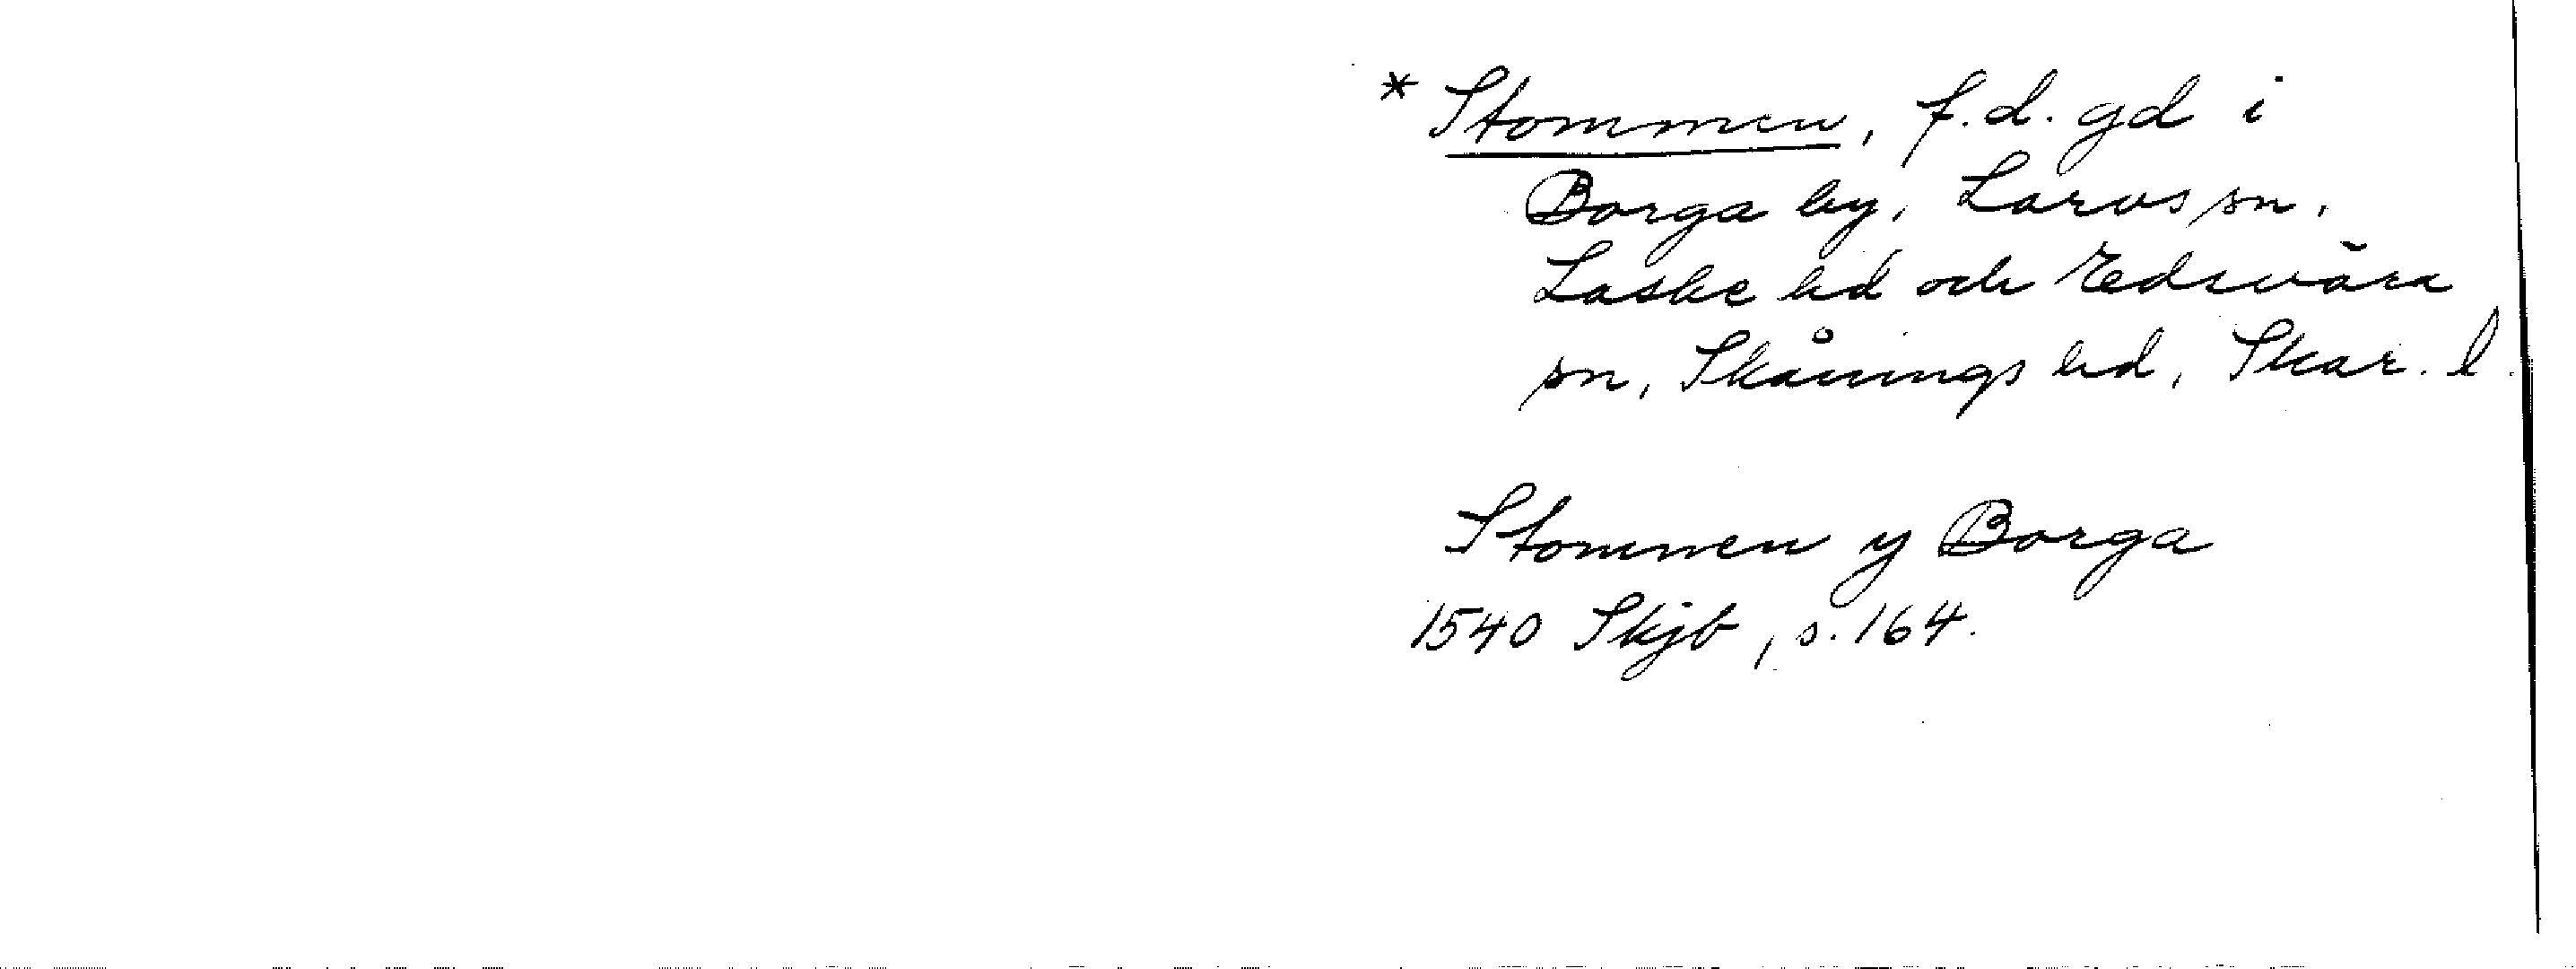 * Stommen, f.d. gd i
Borga by, Larvs sn,
Laske hd och Edsvära
sn, Skånings hd, Skar. l.
Stommen y Borga
1540 Skjb, s. 164.